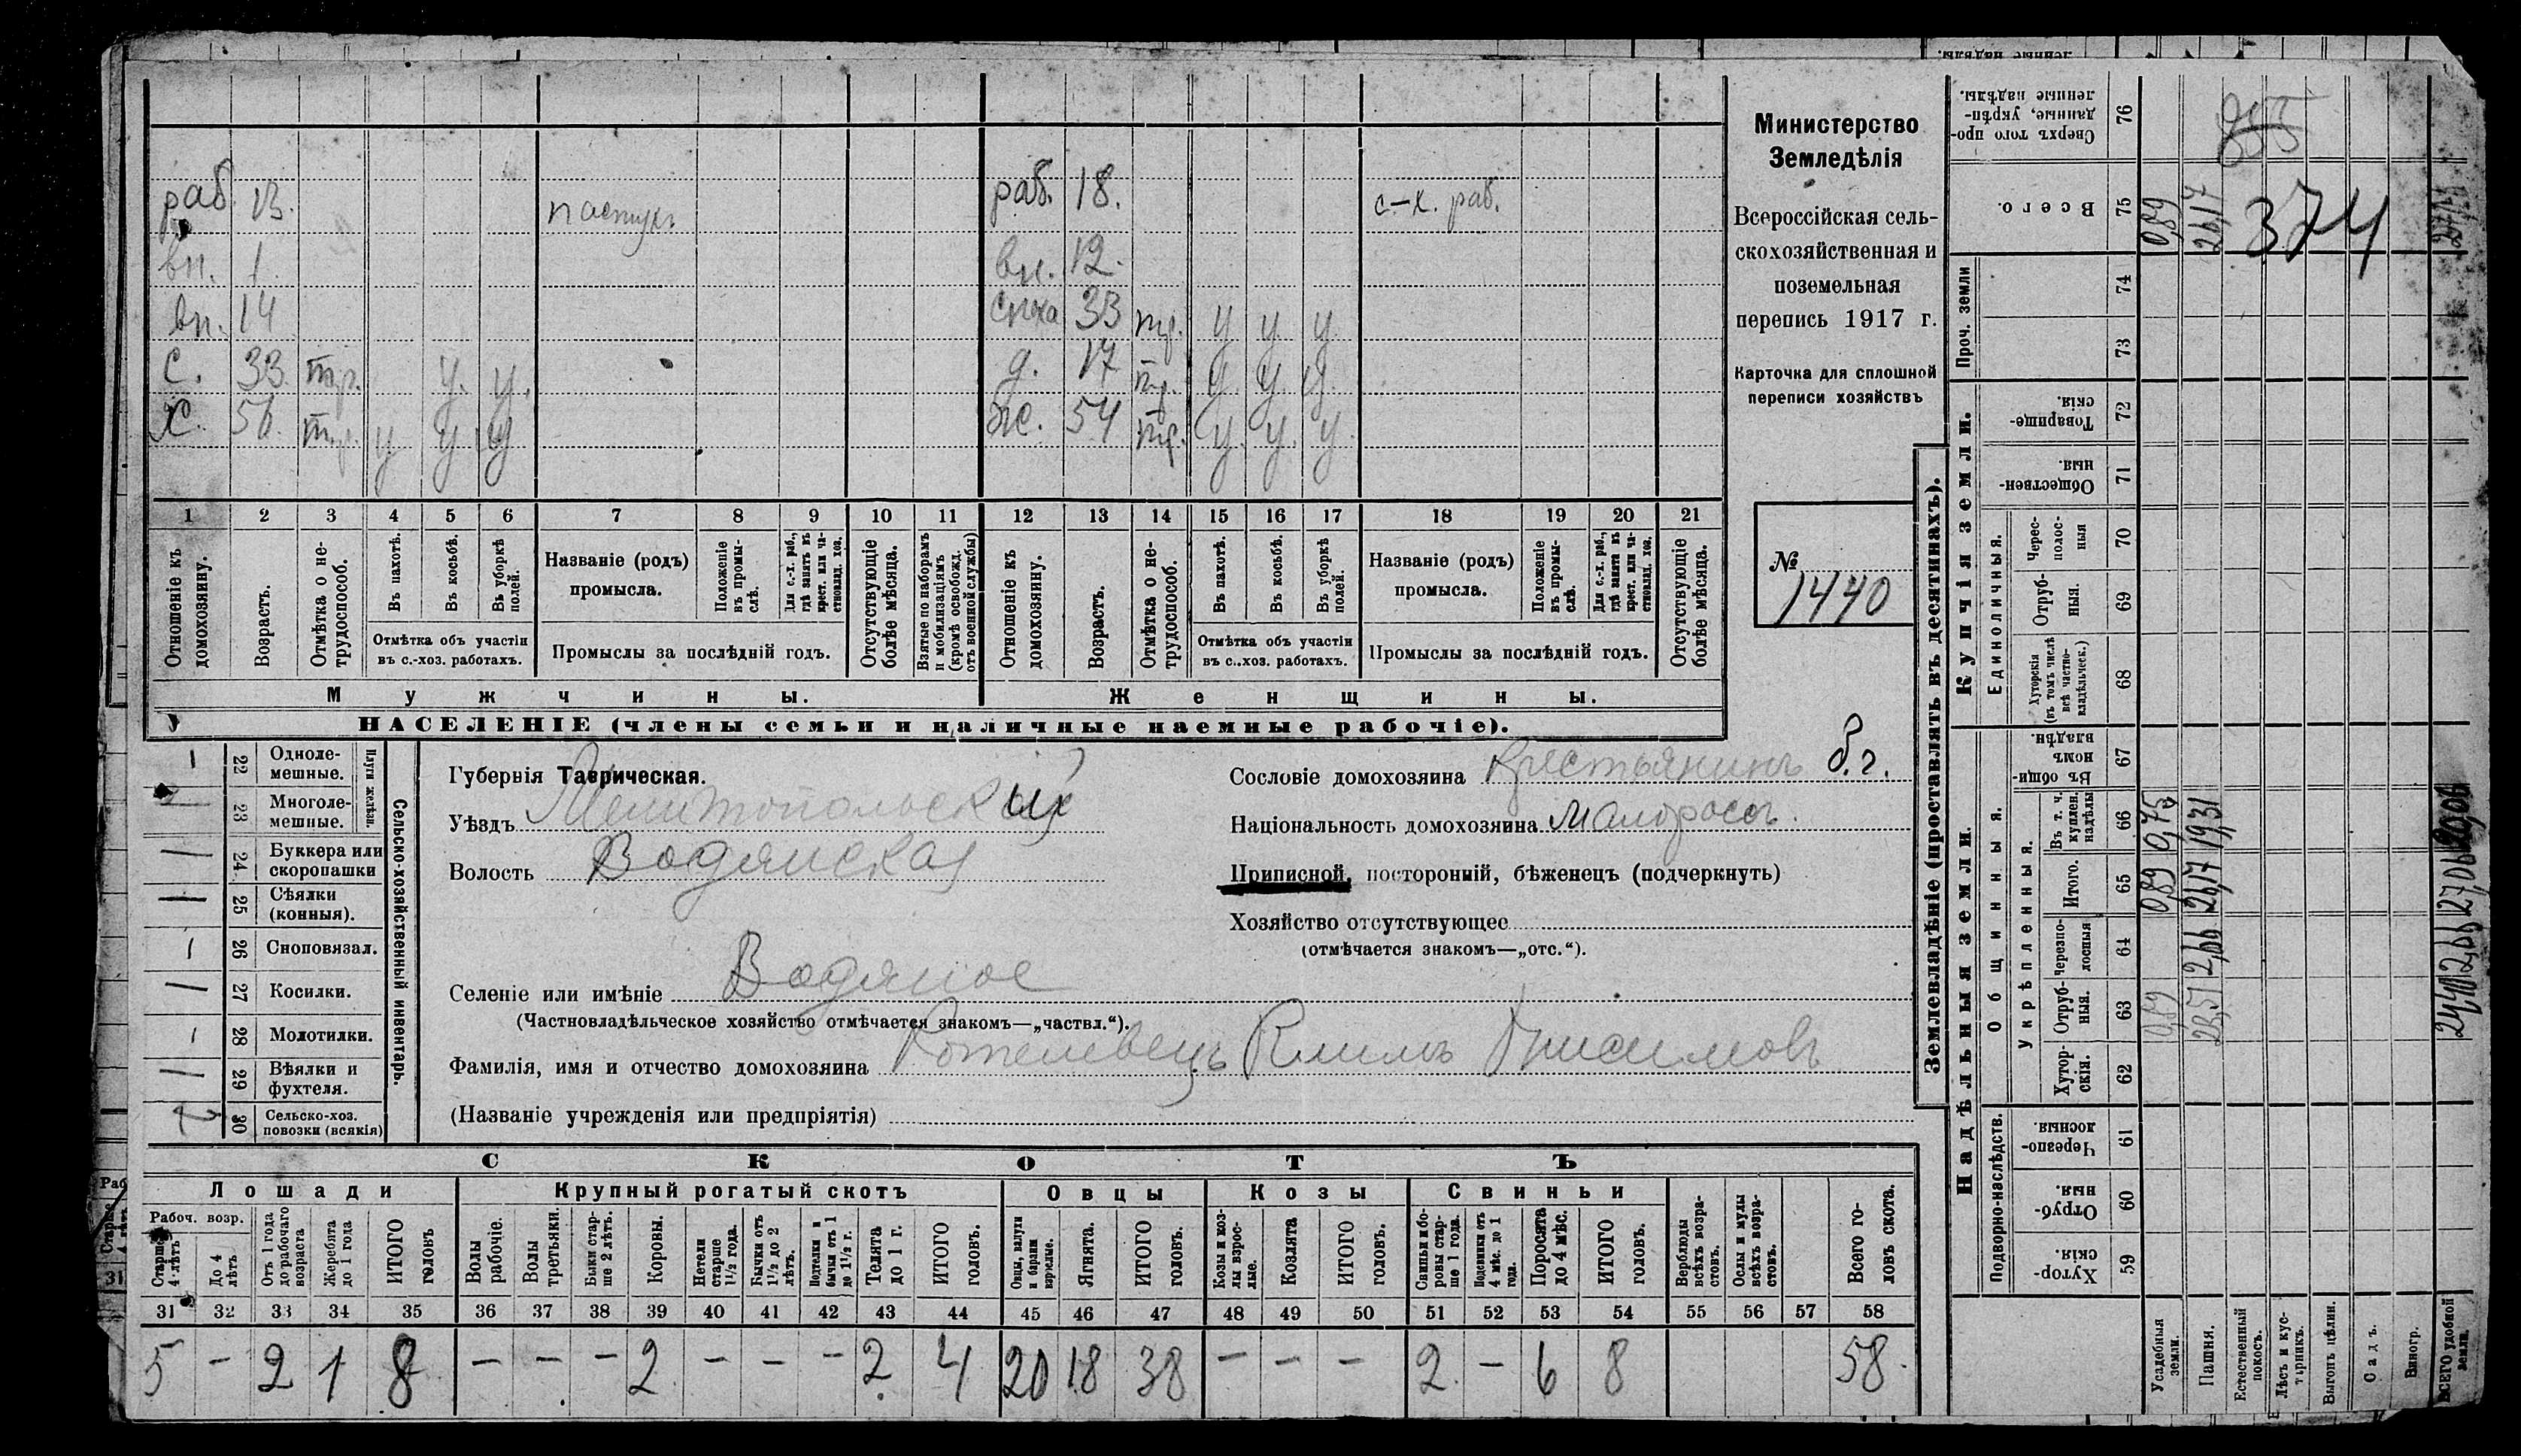 раб. 13. пастухъ раб. 18. с-х. раб.
вн. 1. вн. 12.
вн. 14 сноха 33 тр. у у у
с. 33. тр. у. у. д. 17 тр. у. у. у.
х. 56. тр. у у у ж. 54 тр. у. у. у.
1 2 3 4 5 6 7 8 9 10 11 12 13 14 15 16 17 18 19 20 21
Отношеніе къ домохозяину.
Возрастъ.
Отмѣтка о не-трудоспособ.
Въ пахотѣ.
Въ косьбѣ.
Въ уборкѣ полей.
Отмѣтка объ участіи въ с.-хоз. работахъ.
Названіе (родъ) промысла.
Положеніе въ промы-слѣ.
Для с.-х. раб., гдѣ занятъ въ крест. или ча-стновлад. хоз.
Промыслы за послѣдній годъ.
Отсутствующіе болѣе мѣсяца.
Взятые по наборамъ и мобилизаціямъ (кромѣ освобожд. отъ военной службы)
Отношеніе къ домохозяину.
Возрастъ.
Отмѣтка о не-трудоспособ.
Въ пахотѣ.
Въ косьбѣ.
Въ уборкѣ полей.
Отмѣтка объ участіи въ с..хоз. работахъ.
Названіе (родъ) промысла.
Положеніе въ промы-слѣ.
Для с.-х. раб., гдѣ занята въ крест. или ча-стновлад. хоз.
Промыслы за послѣдній годъ.
Отсутствующіе болѣе мѣсяца.
Мужчины. Женщины.
НАСЕЛЕНІЕ (члены семьи и наличные наемные рабочіе).
Министерство
Земледѣлія
Всероссійская сель-
скохозяйственная и
поземельная
перепись 1917 г.
Карточка для сплошной
переписи хозяйствъ
№
1440
22 Одноле-мешные.
23 Многоле-мешные.
Плуги желѣзн.
24 Буккера или скоропашки
25 Сѣялки (конныя).
26 Сноповязал.
27 Косилки.
28 Молотилки.
29 Вѣялки и фухтеля.
30 Сельско-хоз. повозки (всякія)
Сельско-хозяйственный инвентарь.
Губернія Таврическая.
Уѣздъ Мелитопольскій
Волость Водянская
Селеніе или имѣніе Водяное
(Частновладѣльческое хозяйство отмѣчается знакомъ—„частвл.“).
Фамилія, имя и отчество домохозяина Котелевецъ Климъ Онисимовъ
(Названіе учрежденія или предпріятія)
Сословіе домохозяина крестьянинъ б.г.
Національность домохозяина малороссъ.
Приписной, посторонній, бѣженецъ (подчеркнуть)
Хозяйство отсутствующее
(отмѣчается знакомъ—„отс.“).
СКОТЪ
Лошади Крупный рогатый скотъ Овцы Козы Свиньи
Рабоч. возр.
Старше 4 лѣтъ
До 4 лѣтъ
Отъ 1 года до рабочаго возраста
Жеребята до 1 года
ИТОГО головъ
Волы рабочіе.
Волы третьяки.
Быки стар-ше 2 лѣтъ.
Коровы.
Нетели старше 1½ года.
Бычки отъ 1½ до 2 лѣтъ.
Подтелки и бычки отъ 1 до 1½ г.
Телята до 1 г.
ИТОГО головъ.
Овцы, валухи и бараны взрослые.
Ягнята.
ИТОГО головъ.
Козы и коз-лы взрос-лые.
Козлята
ИТОГО головъ.
Свиньи бо-ровы стар-ше 1 года.
Подсвинки отъ 4 мѣс. до 1 года.
Поросята до 4 мѣс.
ИТОГО головъ.
Верблюды всѣхъ возра-стовъ.
Ослы и мулы всѣхъ возра-стовъ.
Всего го-ловъ скота.
31 32 33 34 35 36 37 38 39 40 41 42 43 44 45 46 47 48 49 50 51 52 53 54 55 56 57 58
5 - 2 1 8 - - - 2 - - - 2 4 20 18 38 - - - 2 - 6 8 58
Землевладѣніе (проставлять въ десятинахъ).
Купчія земли.
Надѣльныя земли.
Сверхъ того про-данные, укрѣп-ленные надѣлы. 76
855
Всего. 75 0,89 26,17 374
Проч. земли 74 73
Товарище-скія. 72
Обществен-ныя. 71
Единоличныя.
Черес-полос-ныя 70
Отруб-ныя. 69
Хуторскія (въ томъ числѣ всѣ частно-владѣльческ.) 68
Общинныя.
Въ общи-номъ владѣн. 67
Укрѣпленныя.
Въ т. ч. куплен. надѣлы 66 0,75 19,31
Итого. 65 0,89 26,17 27,06
Черезпо-лосныя 64 2,66 2,66
Отруб-ныя. 63 0,89 23,51 24,40
Хутор-скія. 62
Подворно-наслѣдств.
Черезпо-лосныя. 61
Отруб-ныя. 60
Хутор-скія. 59
Усадебныя земли.
Пашня.
Естественный покосъ.
Лѣсъ и кус-тарникъ.
Выгонъ цѣлин.
Садъ.
Виногр.
ВСЕГО удобной земли.